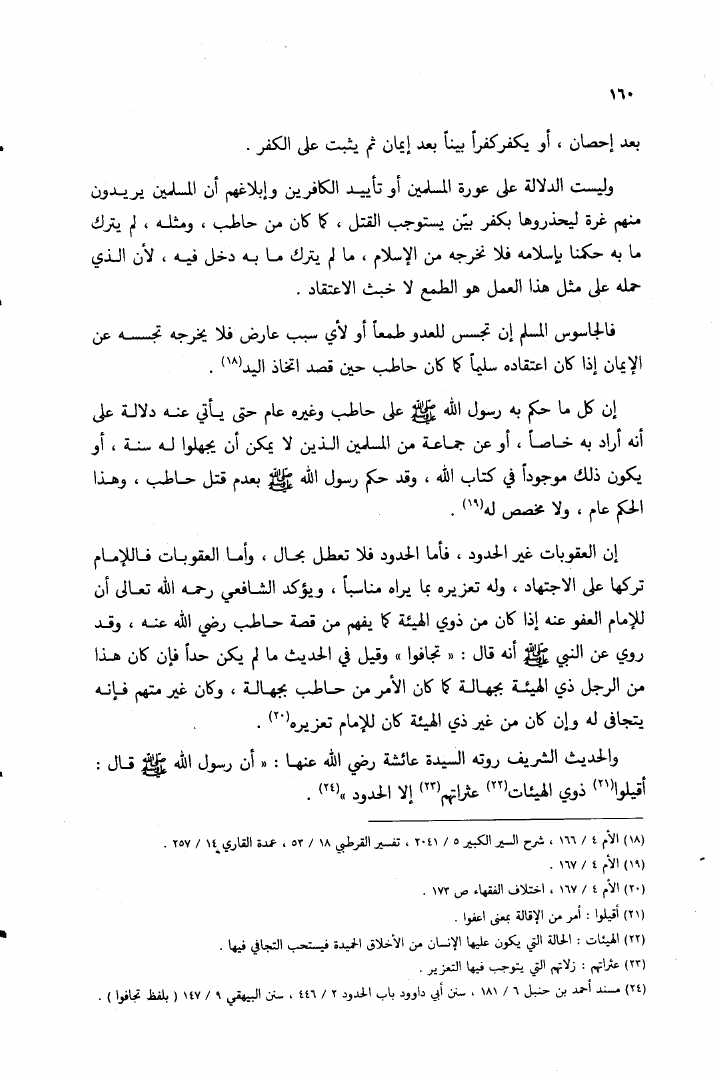 ١٦٠
بعد إحصان ، أو يكفركفراً بيناً بعد إيمان ثم يثبت على الكفر .
وليست الدلالة على عورة المسلمين أو تأييد الكافرين وإبلاغهم أن المسلمين يريدون
منهم غرة ليحذروها بكفر بيّن يستوجب القتل ، كما كان من حاطب ، ومثله ، لم يترك
ما به حكمنا بإسلامه فلا نخرجه من الإسلام ، ما لم يترك ما به دخل فيه ، لأن الذي
حمله على مثل هذا العمل هو الطمع لا خبث الاعتقاد .
فالجاسوس المسلم إن تجسس للعدو طمعاً أو لأي سبب عارض فلا يخرجه تجسسه عن
الإيمان إذا كان اعتقاده سليماً كما كان حاطب حين قصد اتخاذ اليد(١٨) .
إن كل ما حكم به رسول الله ﷺ على حاطب وغيره عام حتى يأتي عنه دلالة على
أنه أراد به خاصاً ، أو عن جماعة من المسلمين الذين لا يمكن أن يجهلوا له سنة ، أو
يكون ذلك موجوداً في كتاب الله ، وقد حكم رسول الله ﷺ بعدم قتل حاطب ، وهذا
الحكم عام ، ولا مخصص له(١٩) .
إن العقوبات غير الحدود ، فأما الحدود فلا تعطل بحال ، وأما العقوبات فللإمام
تركها على الاجتهاد ، وله تعزيره بما يراه مناسباً ، ويؤكد الشافعي رحمه الله تعالى أن
للإمام العفو عنه إذا كان من ذوي الهيئة كما يفهم من قصة حاطب رضي الله عنه ، وقد
روي عن النبي ﷺ أنه قال : « تجافوا » وقيل في الحديث ما لم يكن حداً فإن كان هذا
من الرجل ذي الهيئة بجهالة كما كان الأمر من حاطب بجهالة ، وكان غير متهم فإنه
يتجافى له وإن كان من غير ذي الهيئة كان للإمام تعزيره(٢٠) .
والحديث الشريف روته السيدة عائشة رضي الله عنها : « أن رسول الله ﷺ قال :
أقيلوا(٢١) ذوي الهيئات(٢٢) عثراتهم(٢٣) إلا الحدود »(٢٤) .
(١٨) الأم ٤ / ١٦٦ ، شرح السير الكبير ٥ / ٢٠٤١ ، تفسير القرطبي ١٨ / ٥٣ ، عمدة القاري ١٤ / ٢٥٧ .
(١٩) الأم ٤ / ١٦٧ .
(٢٠) الأم ٤ / ١٦٧ ، اختلاف الفقهاء ص ١٧٣ .
(٢١) أقيلوا : أمر من الإقالة بمعنى اعفوا .
(٢٢) الهيئات : الحالة التي يكون عليها الإنسان من الأخلاق الحميدة فيستحب التجافي فيها .
(٢٣) عثراتهم : زلاتهم التي يتوجب فيها التعزير .
(٢٤) مسند أحمد بن حنبل ٦ / ١٨١ ، سنن أبي داوود باب الحدود ٢ / ٤٤٦ ، سنن البيهقي ٩ / ١٤٧ ( بلفظ تجافوا ) .